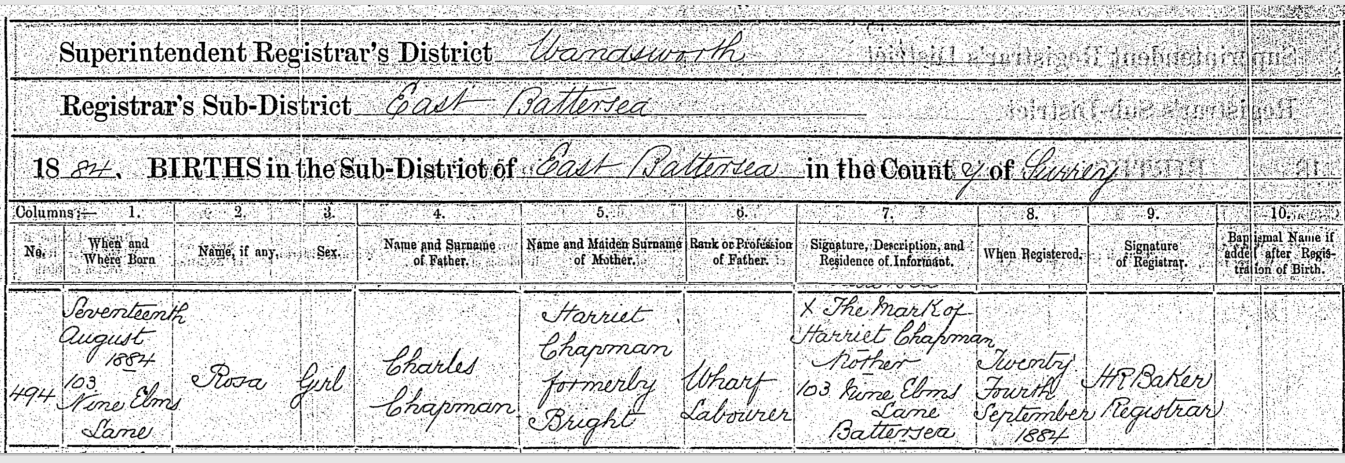 Superintendent Registrar's District Wandsworth
Registrar's Sub-District East Battersea
1884. BIRTHS in the Sub-District of East Battersea in the County of Surrey
Columns:— 1. 2. 3. 4. 5. 6. 7. 8. 9. 10.
No.
When and
Where Born
Name, if any.
Sex.
Name and Surname
of Father.
Name and Maiden Surname
of Mother.
Rank or Profession
of Father.
Signature, Description, and
Residence of Informant.
When Registered.
Signature
of Registrar.
Baptismal Name if
added after Regis-
tration of Birth.
494
Seventeenth
August
1884
103
Nine Elms
Lane
Rosa
Girl
Charles
Chapman
Harriet
Chapman
formerly
Bright
Wharf
Labourer
X The Mark of
Harriet Chapman
Mother
103 Nine Elms
Lane
Battersea
Twenty
Fourth
September
1884
HR Baker
Registrar